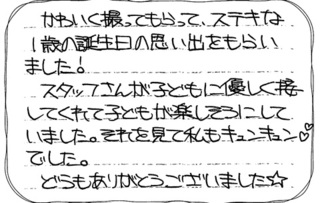 かわいく撮ってもらって、ステキな
1歳の誕生日の思い出をもらい
ました！
スタッフさんが子どもに優しく接
してくれて子どもが楽しそうにして
いました。それを見て私もキュンキュン♡
でした。
どうもありがとうございました☆